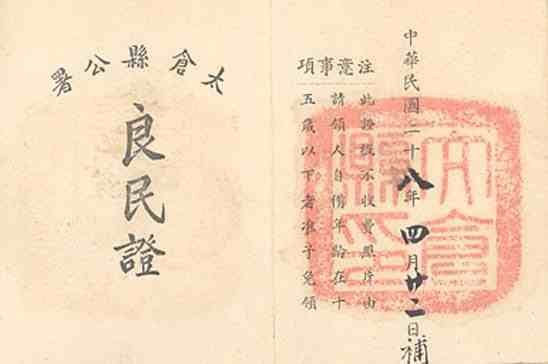 太倉縣公署
良民證
中華民國二十八年四月廿二日補
注意事項
此證概不收費照片由
請領人自備年齡在十
五歲以下者准予免領
太倉
縣印